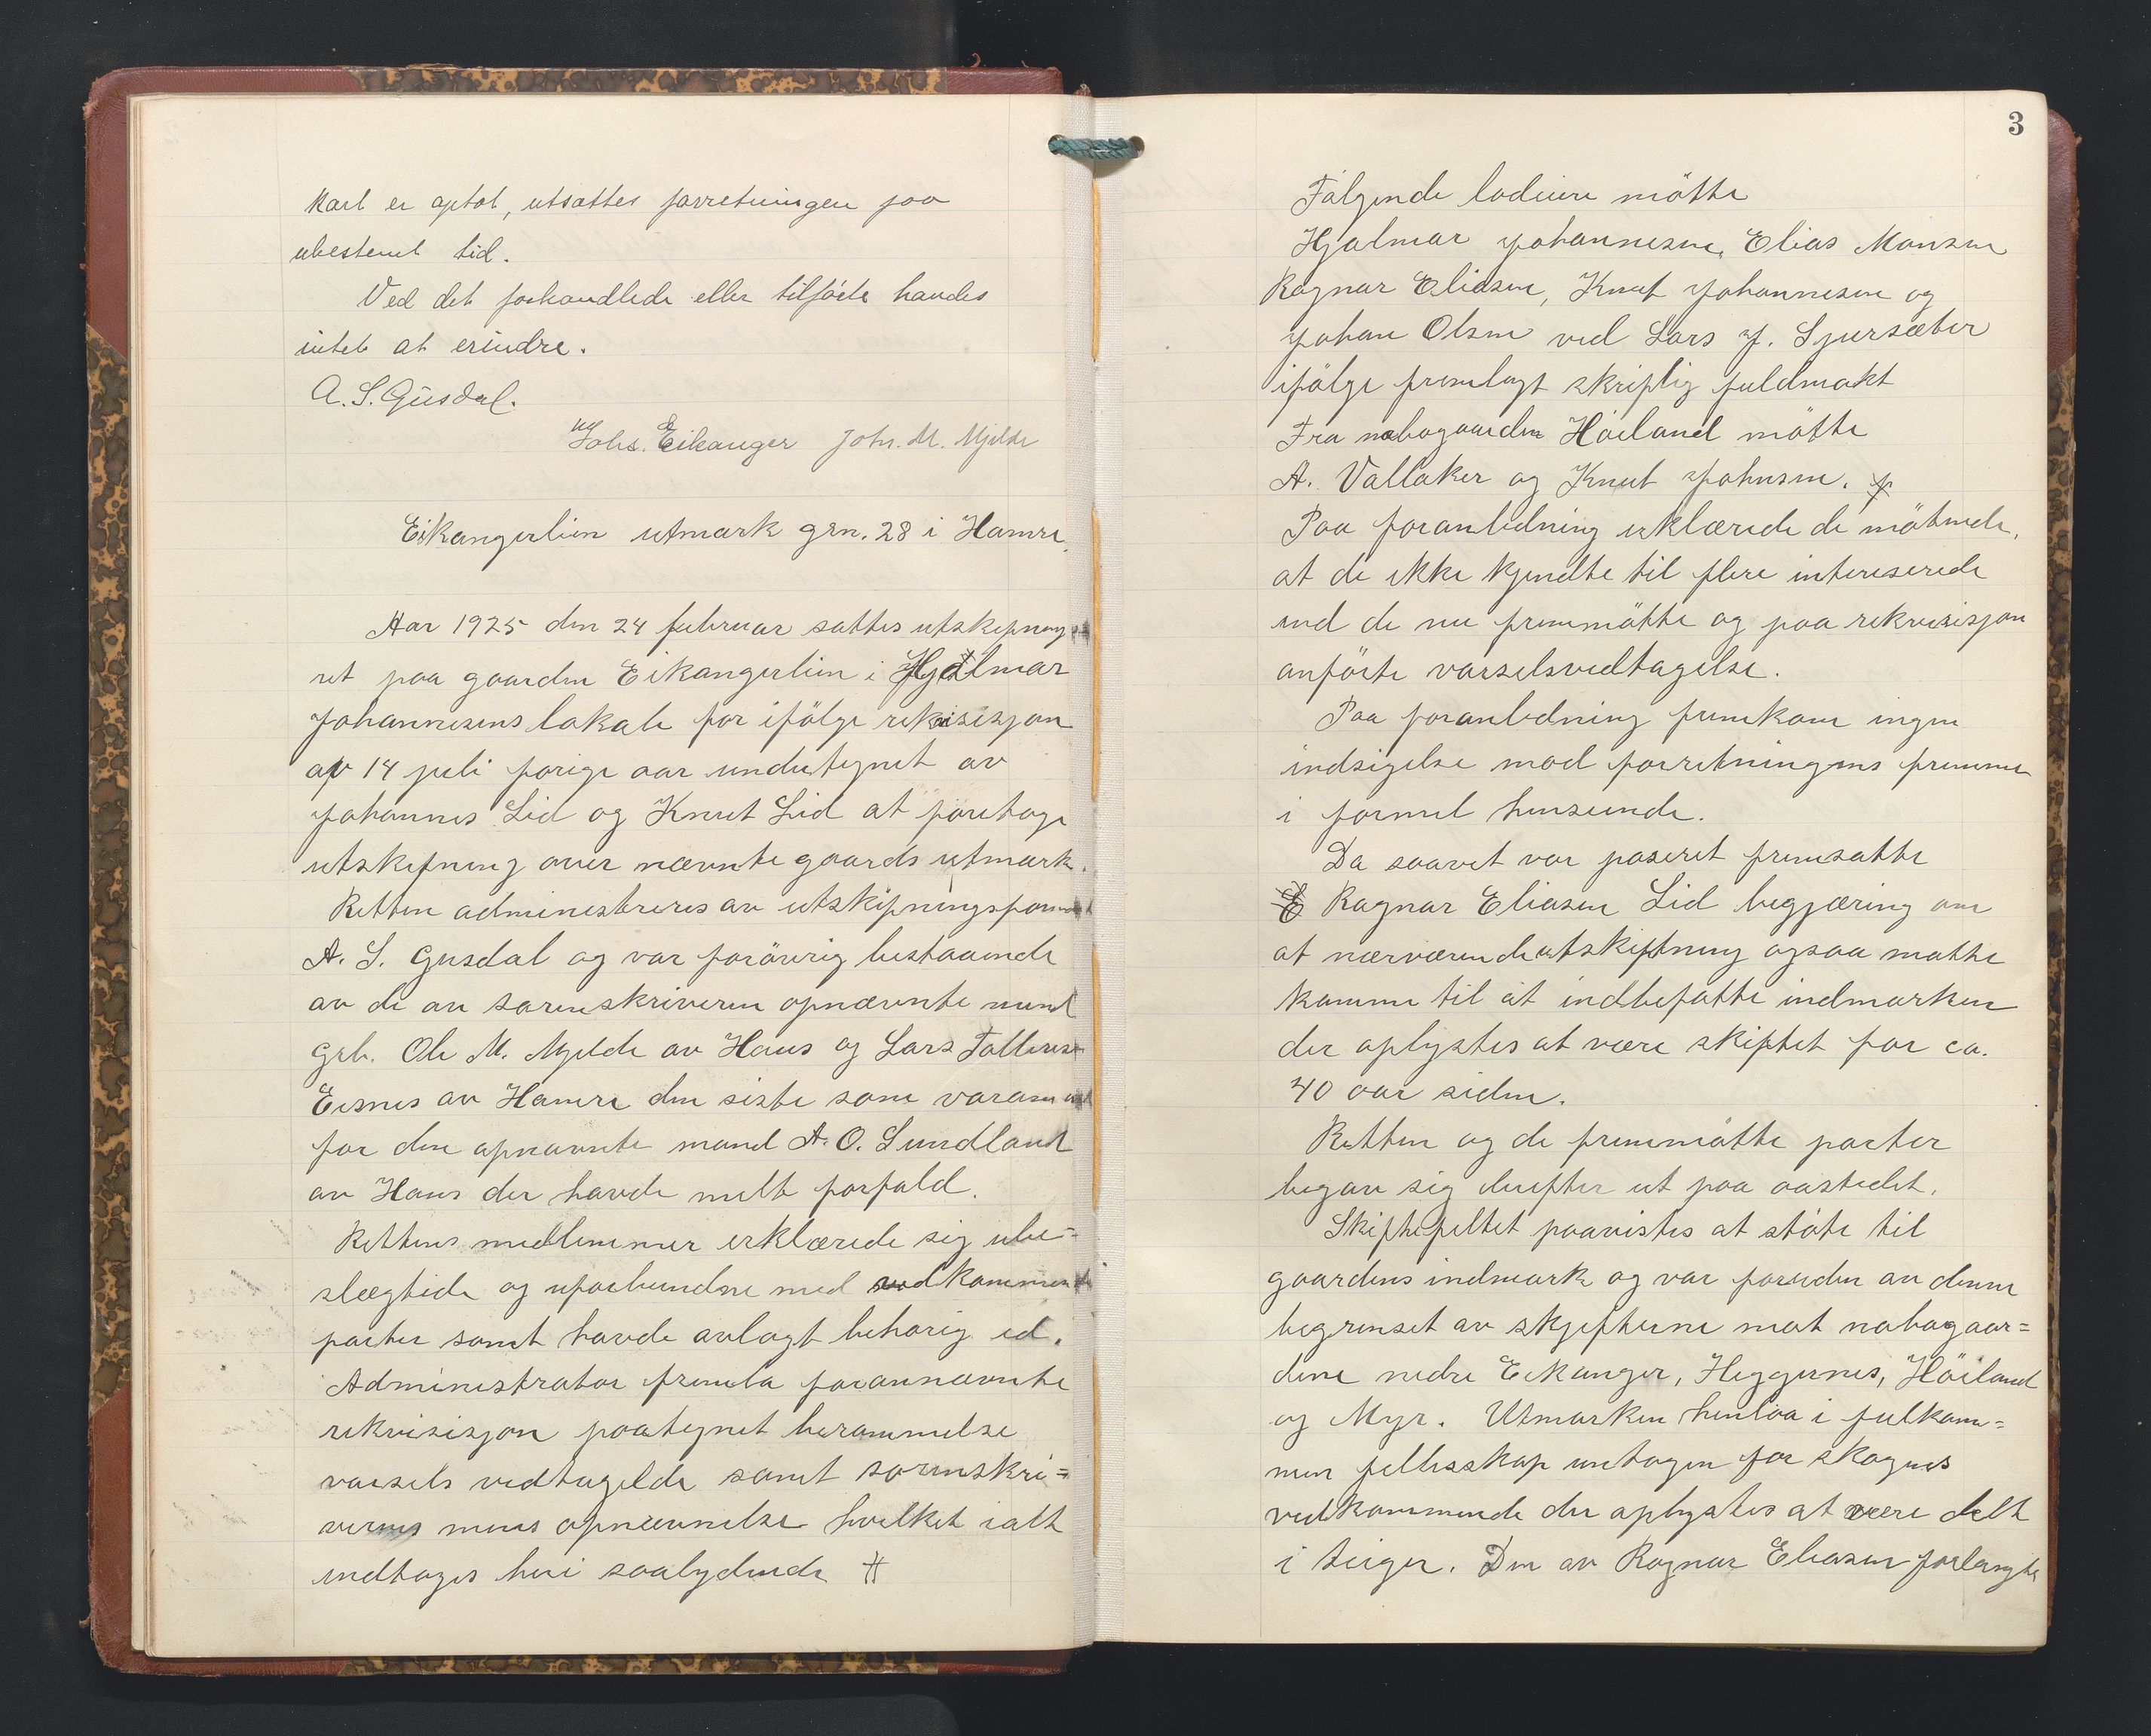 Kart er optat, utsattes forretningen paa
ubestemt tid.
Ved det forhandlede eller tilførte havdes
intet at erindre.
A. S. Gusdal.
Johs. Eikanger John. M. Mjelde
Eikangerlien utmark grn. 28 i Hamre.
Aar 1925 den 24 februar sattes utskiftnings
ret paa gaarden Eikangerlien i Hjalmar
Johannesens lokale for ifölge rekvisisjon
av 14 juli forige aar undertegnet av
Johannes Lid og Knut Lid at foretage
utskiftning over nævnte gaards utmark.
Retten administreres av utskiftningsformand
A. S. Gusdal og var forövrig bestaaende
av de av sorenskriveren opnævnte mend
grb. Ole M. Mjelde av Haus og Lars Tollevsen
Eisnes av Hamre den siste som varamand
for den opnævnte mand A. O. Lundland
av Haus der havde meldt forfald.
Rettens medlemmer erklærede sig ube=
slegtede og uforbundne med vedkommende
parter samt havde avlagt behörig ed.
Administrator fremla forannævnte
rekvisisjon paategnet berammelse
varsels vedtagelde samt sorenskri=
verens mens opnævnelse hvilket ialt
indtages heri saalydende #
3
Følgende lodeiere mötte
Hjalmar Johannesen, Elias Monsen
Ragnar Eliasen, Knut Johannesen og
Johan Olsen ved Lars J. Sjursæter
ifölge fremlagt skriftlig fuldmakt
Fra nabogaarden Höiland mötte
A. Vallaker og Knut Johnsen.
Paa foranledning erklærede de mötende,
at de ikke kjendte til flere intereserede
end de nu fremmötte og paa rekvisisjon
anförte varselsvedtagelse.
Paa foranledning fremkom ingen
indsigelse mod forretningens fremme
i formel henseende.
Da saavet var paseret fremsatte
Ragnar Eliasen Lid begjæring om
at nærværende utskiftning ogsaa matte
komme til at indbefatte indmarken
der oplystes at være skiftet for ca.
40 aar siden.
Retten og de fremmötte parter
begav sig derefter ut paa aastedet.
Skiftefeltet paavistes at stöte til
gaardens indmark og var foruden av denne
begrenset av skjefterne mot nabogaar=
dene nedre Eikanger, Heggernes, Höiland
og Myr. Utmarken henlaa i fulkom=
men fellesskap untagen for skogens
vedkommende der oplystes at være delt
i teiger. Den av Ragnar Eliasen forlangte